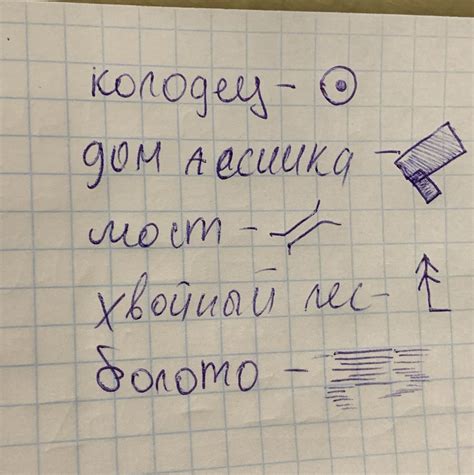 колодец -
дом лесника -
мост -
хвойный лес -
болото -